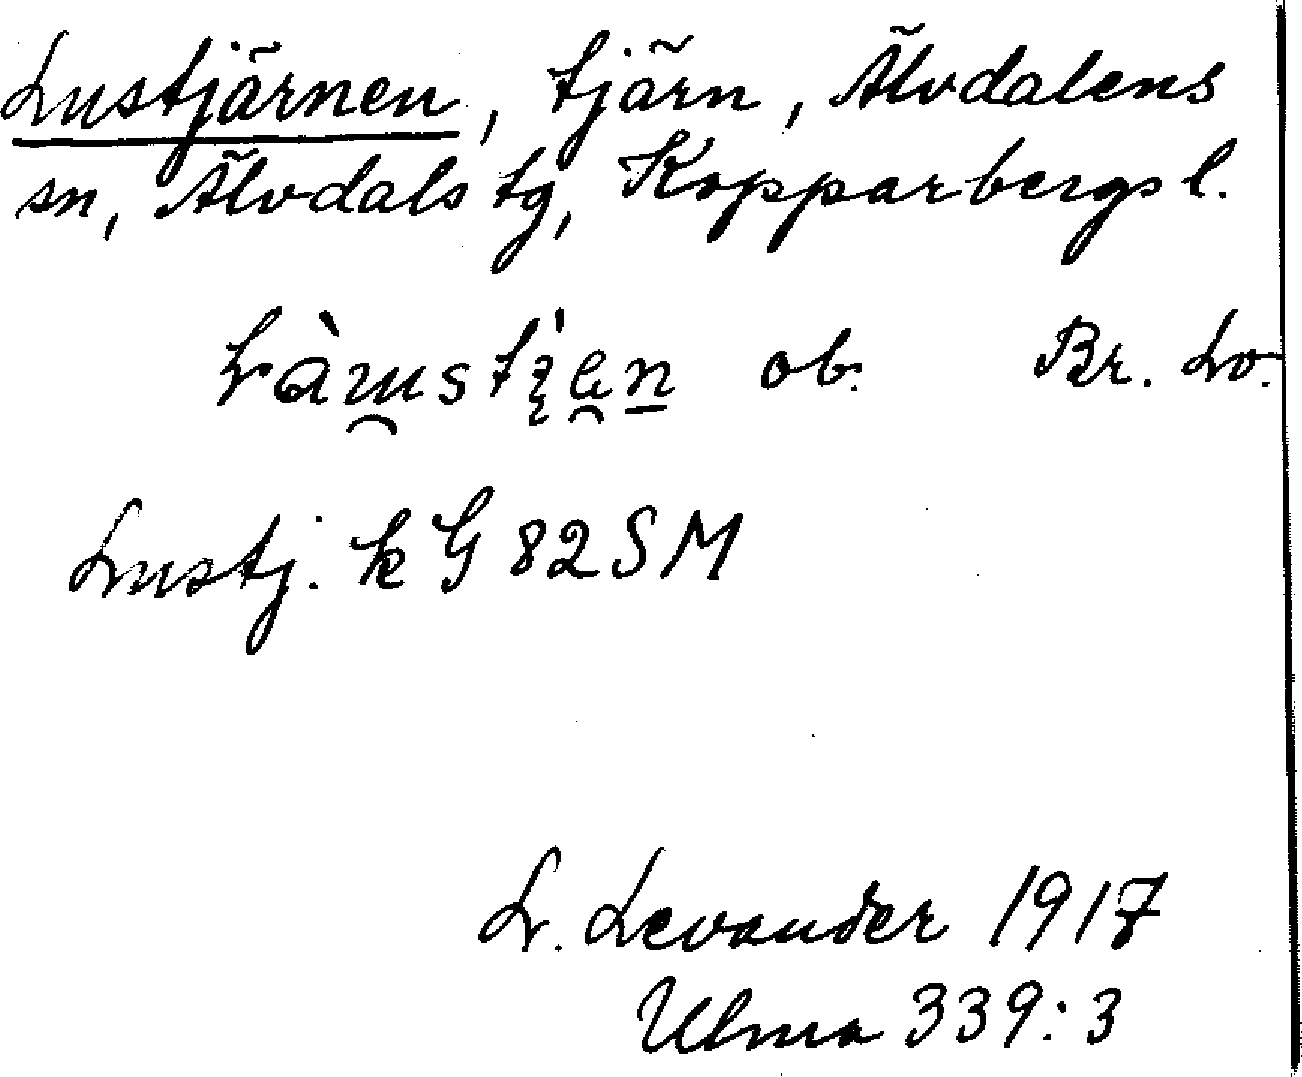 Lustjärnen, tjärn, Älvdalens
sn, Älvdals tg, Kopparbergs l.
ob. Br. Lo.
Lustj. k G 82 SM
L. Levander 1917
Ulma 339:3